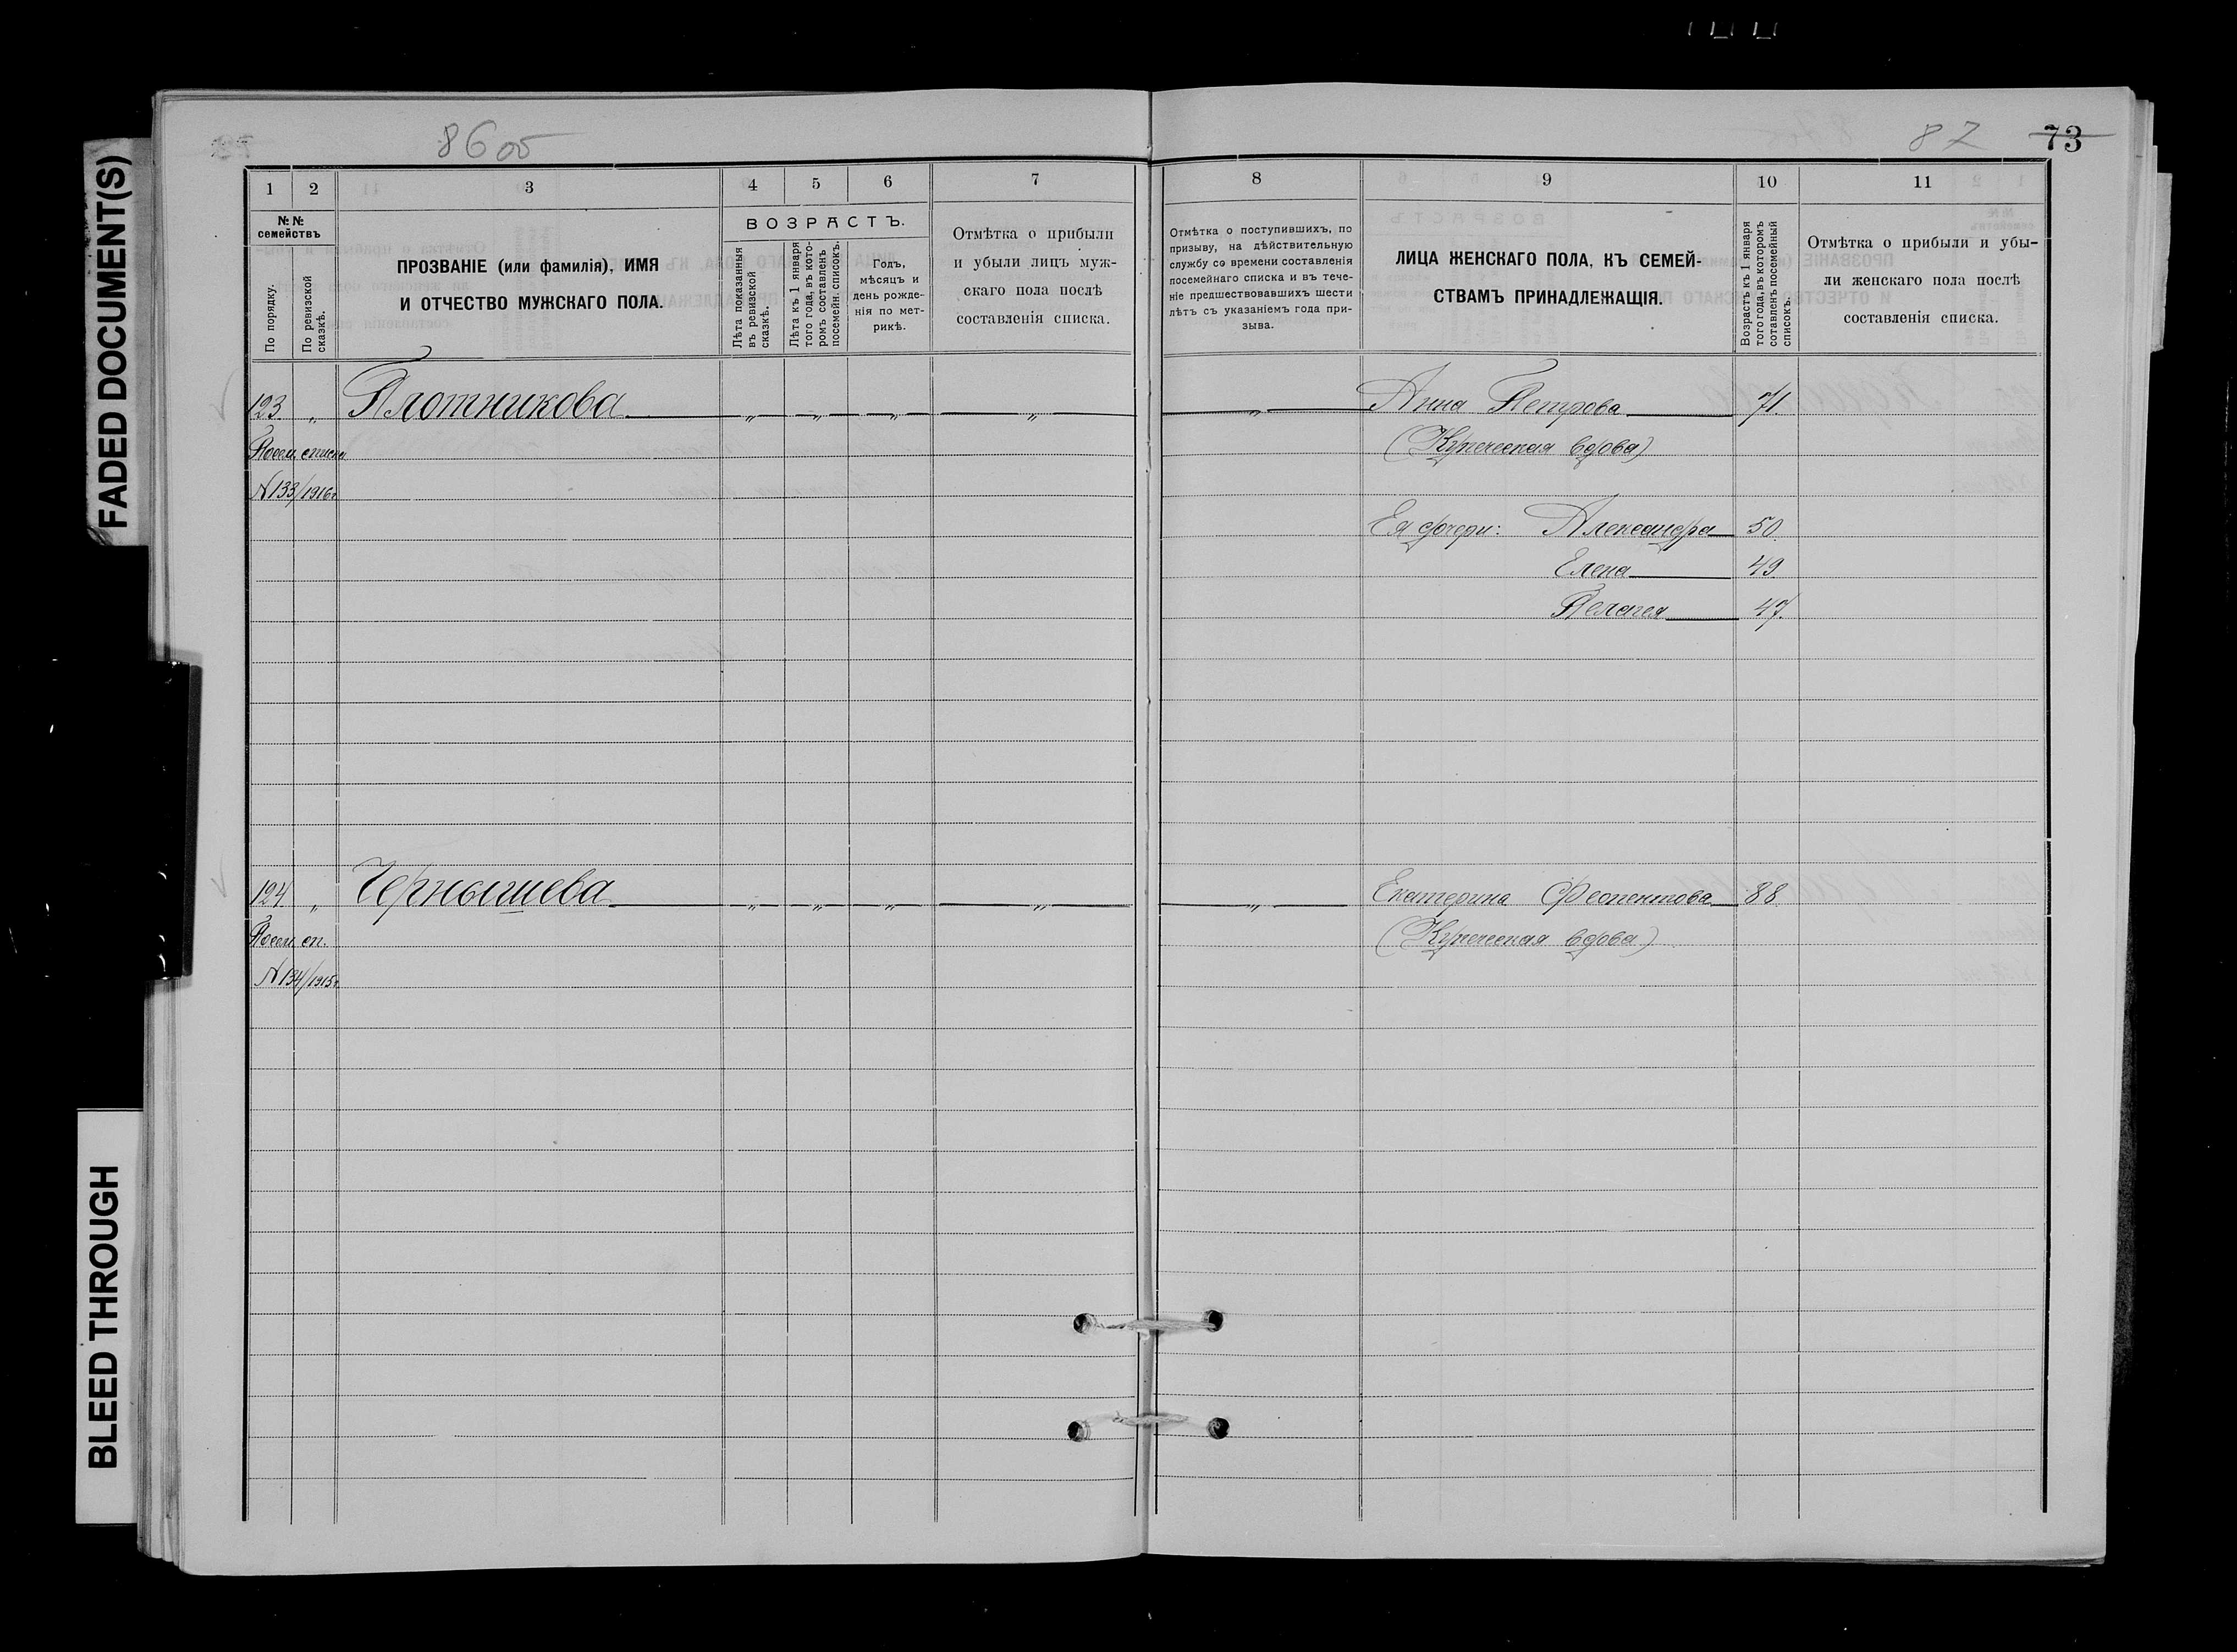 FADED DOCUMENT(S)
BLEED THROUGH
86 об
87 73
1 2 3 4 5 6 7
№№ семействъ
По порядку.
По ревизской сказкѣ.
ПРОЗВАНІЕ (или фамилія), ИМЯ
И ОТЧЕСТВО МУЖСКАГО ПОЛА.
ВОЗРАСТЪ.
Лѣта показанныя въ ревизской сказкѣ.
Лѣта къ 1 января того года, въ которомъ составленъ посемейн. списокъ.
Годъ,
мѣсяцъ и
день рожде-
нія по мет-
рикѣ.
Отмѣтка о прибыли
и убыли лицъ муж-
скаго пола послѣ
составленія списка.
8 9 10 11
Отмѣтка о поступившихъ, по
призыву, на дѣйствительную
службу со времени составленія
посемейнаго списка и въ тече-
ніе предшествовавшихъ шести
лѣтъ съ указаніемъ года при-
зыва.
ЛИЦА ЖЕНСКАГО ПОЛА, КЪ СЕМЕЙ-
СТВАМЪ ПРИНАДЛЕЖАЩІЯ.
Возрастъ къ 1 января
того года, въ которомъ
составленъ посемейный
списокъ.
Отмѣтка о прибыли и убы-
ли женскаго пола послѣ
составленія списка.
123. „ Плотникова „ „ „ „ „ Анна Петрова 71
Посем. списка (Купеческая вдова)
№133/1916г.
Ея дочери: Александра 50.
Елена 49.
Пелагея 47.
124. „ Чернышева „ „ „ „ „ Екатерина Феопентова 88.
Посем. сп. (Купеческая вдова)
№134/1915г.